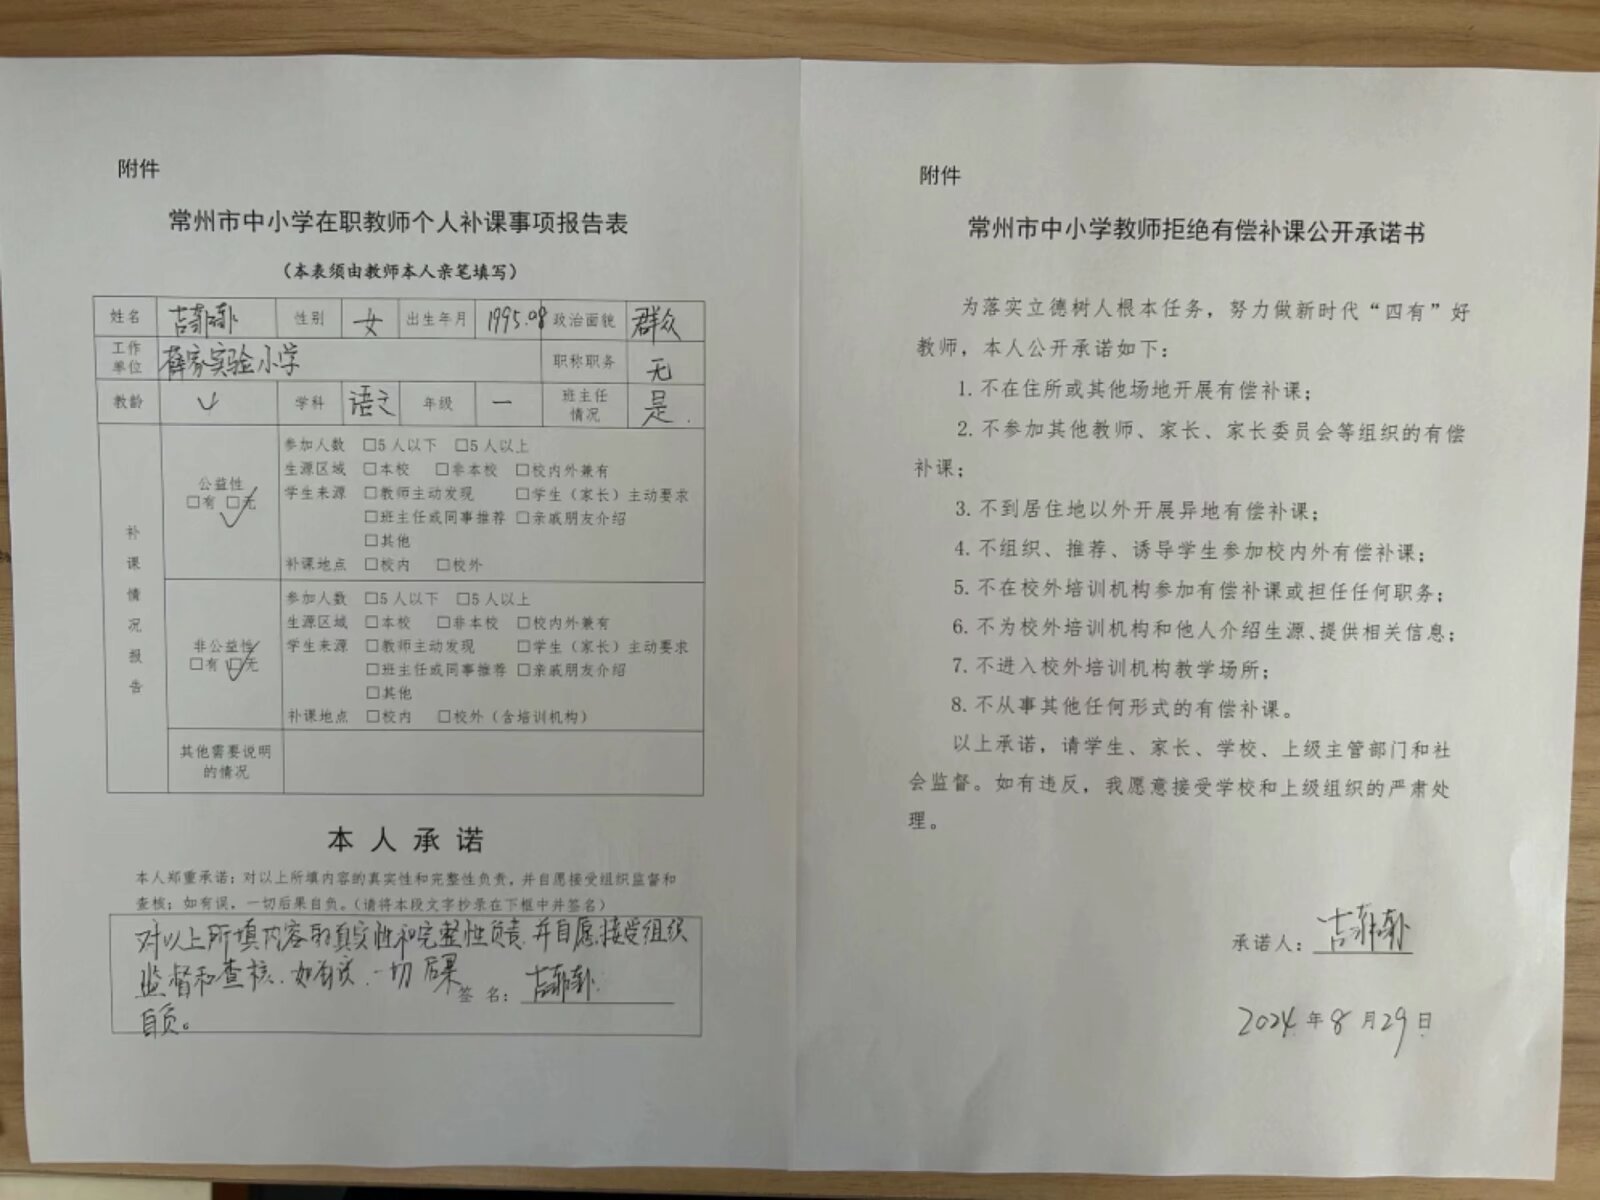 附件
常州市中小学在职教师个人补课事项报告表
（本表须由教师本人亲笔填写）
姓名 吉 性别 女 出生年月 1995.08 政治面貌 群众
工作单位 薛家实验小学 职称职务 无
教龄 学科 语文 年级 一 班主任情况 是.
补课情况报告
公益性
□有 □无
参加人数 □5人以下 □5人以上
生源区域 □本校 □非本校 □校内外兼有
学生来源 □教师主动发现 □学生（家长）主动要求
□班主任或同事推荐 □亲戚朋友介绍
□其他
补课地点 □校内 □校外
非公益性
□有 □无
参加人数 □5人以下 □5人以上
生源区域 □本校 □非本校 □校内外兼有
学生来源 □教师主动发现 □学生（家长）主动要求
□班主任或同事推荐 □亲戚朋友介绍
□其他
补课地点 □校内 □校外（含培训机构）
其他需要说明
的情况
本人承诺
本人郑重承诺：对以上所填内容的真实性和完整性负责，并自愿接受组织监督和
查核；如有误，一切后果自负。（请将本段文字抄录在下框中并签名）
对以上所填内容的真实性和完整性负责，并自愿接受组织
监督和查核、如有误、一切后果
签 名：吉
自负。
附件
常州市中小学教师拒绝有偿补课公开承诺书
为落实立德树人根本任务，努力做新时代“四有”好
教师，本人公开承诺如下：
1. 不在住所或其他场地开展有偿补课；
2. 不参加其他教师、家长、家长委员会等组织的有偿
补课；
3. 不到居住地以外开展异地有偿补课；
4. 不组织、推荐、诱导学生参加校内外有偿补课；
5. 不在校外培训机构参加有偿补课或担任任何职务；
6. 不为校外培训机构和他人介绍生源、提供相关信息；
7. 不进入校外培训机构教学场所；
8. 不从事其他任何形式的有偿补课。
以上承诺，请学生、家长、学校、上级主管部门和社
会监督。如有违反，我愿意接受学校和上级组织的严肃处
理。
承诺人：吉
2024年8月29日